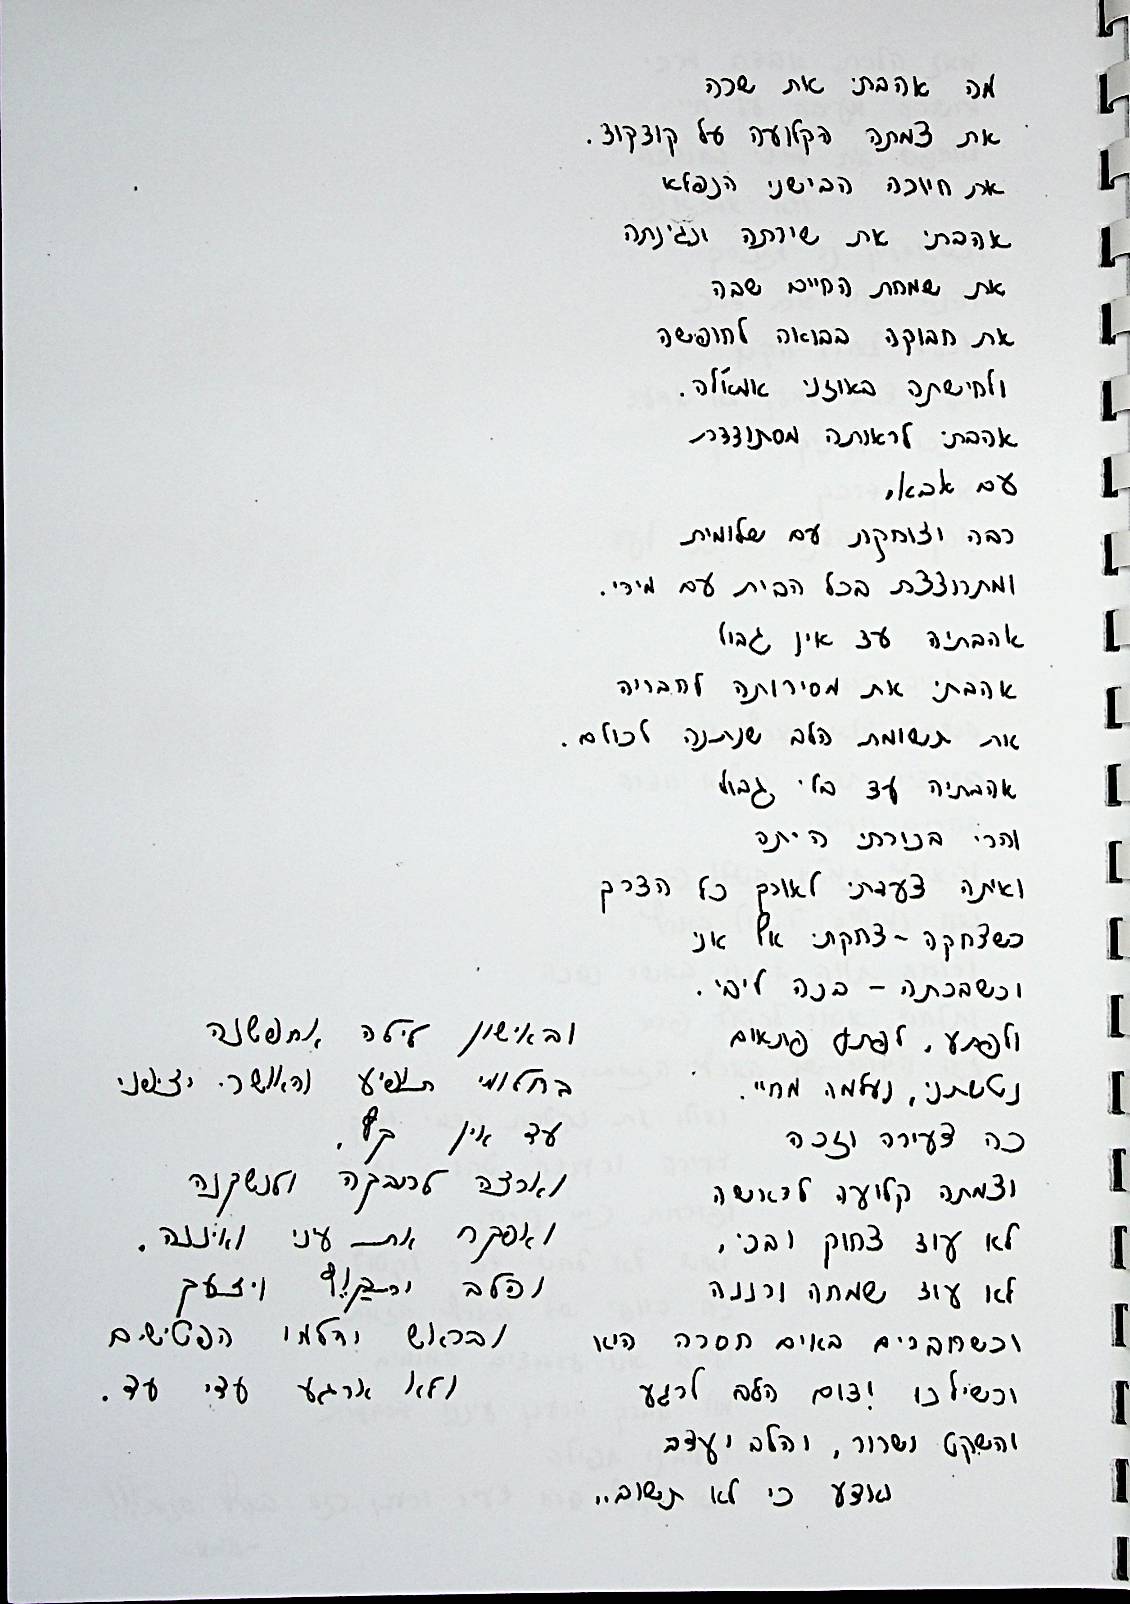 מה אהבתי את שרה
את צמתה הקלועה על קודקוד.
את חיוכה הבישני הנפלא
אהבתי את שירתה ונגינתה
את שמחת החיים שבה
את חבוקה בבואה לחופשה
ולחישתה באוזני אמא'לה.
אהבתי לראותה מסתודדת
עם אבא,
רבה וצוחקת עם שלומית
ומתרוצצת בכל הבית עם מירי.
אהבתיה עד אין גבול
אהבתי את מסירותה לחבריה
את תשומת הלב שנתנה לכולם.
אהבתיה עד בלי גבול
והרי בכורתי הייתה
ואיתה צעדתי לאורך כל הדרך
כשצחקה - צחקתי אף אני
וכשבכתה - בכה ליבי.
ולפתע, לפתע פתאום
נטשתני, נעלמה מחיי.
כה צעירה וזכה
וצמתה קלועה לראשה
לא עוד צחוק ובכי,
לא עוד שמחה ורננה
וכשחברים באים חסרה היא
וכשילכו ידום הלב לרגע
והשקט ישרור, והלב יעצב
נדע כי לא תשוב..
ובאישון לילה אחפשנה
בחלומי תופיע והאושר יציפני
עד אין קץ.
וארצה לחבקה ולנשקה
ואפקח את עיני ואיננה.
והלב ויזעק
ובראש יהלמו הפטישים
ולא ארגע עדי עד.